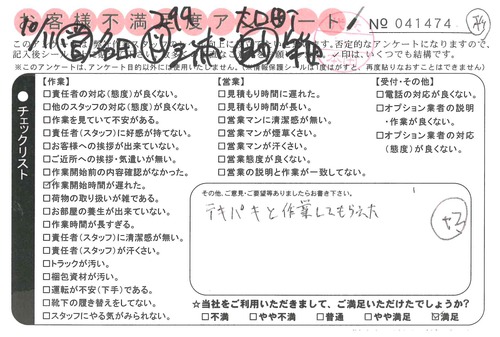 お客様不満足度アンケート
No 041474
※このアンケートは、アンケート目的以外には使用いたしません。
チェックリスト
【作業】
□責任者の対応(態度)が良くない。
□他のスタッフの対応(態度)が良くない。
□作業を見ていて不安がある。
□責任者(スタッフ)に好感が持てない。
□お客様への挨拶が出来ていない。
□ご近所への挨拶・気遣いが無い。
□作業開始前の内容確認がなかった。
☑作業開始時間が遅れた。
□荷物の取り扱いが雑である。
□お部屋の養生が出来ていない。
□作業時間が長すぎる。
□責任者(スタッフ)に清潔感が無い。
□責任者(スタッフ)が汗くさい。
□トラックが汚い。
□梱包資材が汚い。
□運転が不安(下手)である。
□靴下の履き替えをしてない。
□スタッフにやる気がみられない。
【営業】
□見積もり時間に遅れた。
□見積もり時間が長い。
□営業マンに清潔感が無い。
□営業マンが煙草くさい。
□営業マンが汗くさい。
□営業態度が良くない。
□営業の説明と作業が一致してない。
【受付・その他】
□電話の対応が良くない。
□オプション業者の説明
・作業が良くない。
□オプション業者の対応
(態度)が良くない。
その他、ご意見・ご要望等ありましたらお書き下さい。
テキパキと作業してもらえた
☆当社をご利用いただきまして、ご満足いただけたでしょうか?
□不満 □やや不満 □普通 □やや満足 ☑満足